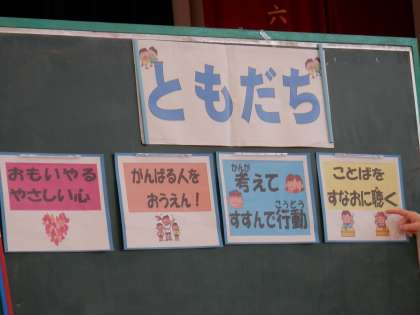 六
ともだち
おもいやる
やさしい心
がんばる人を
おうえん！
かんが
考えて
こうどう
すすんで行動
ことばを
すなおに聴く